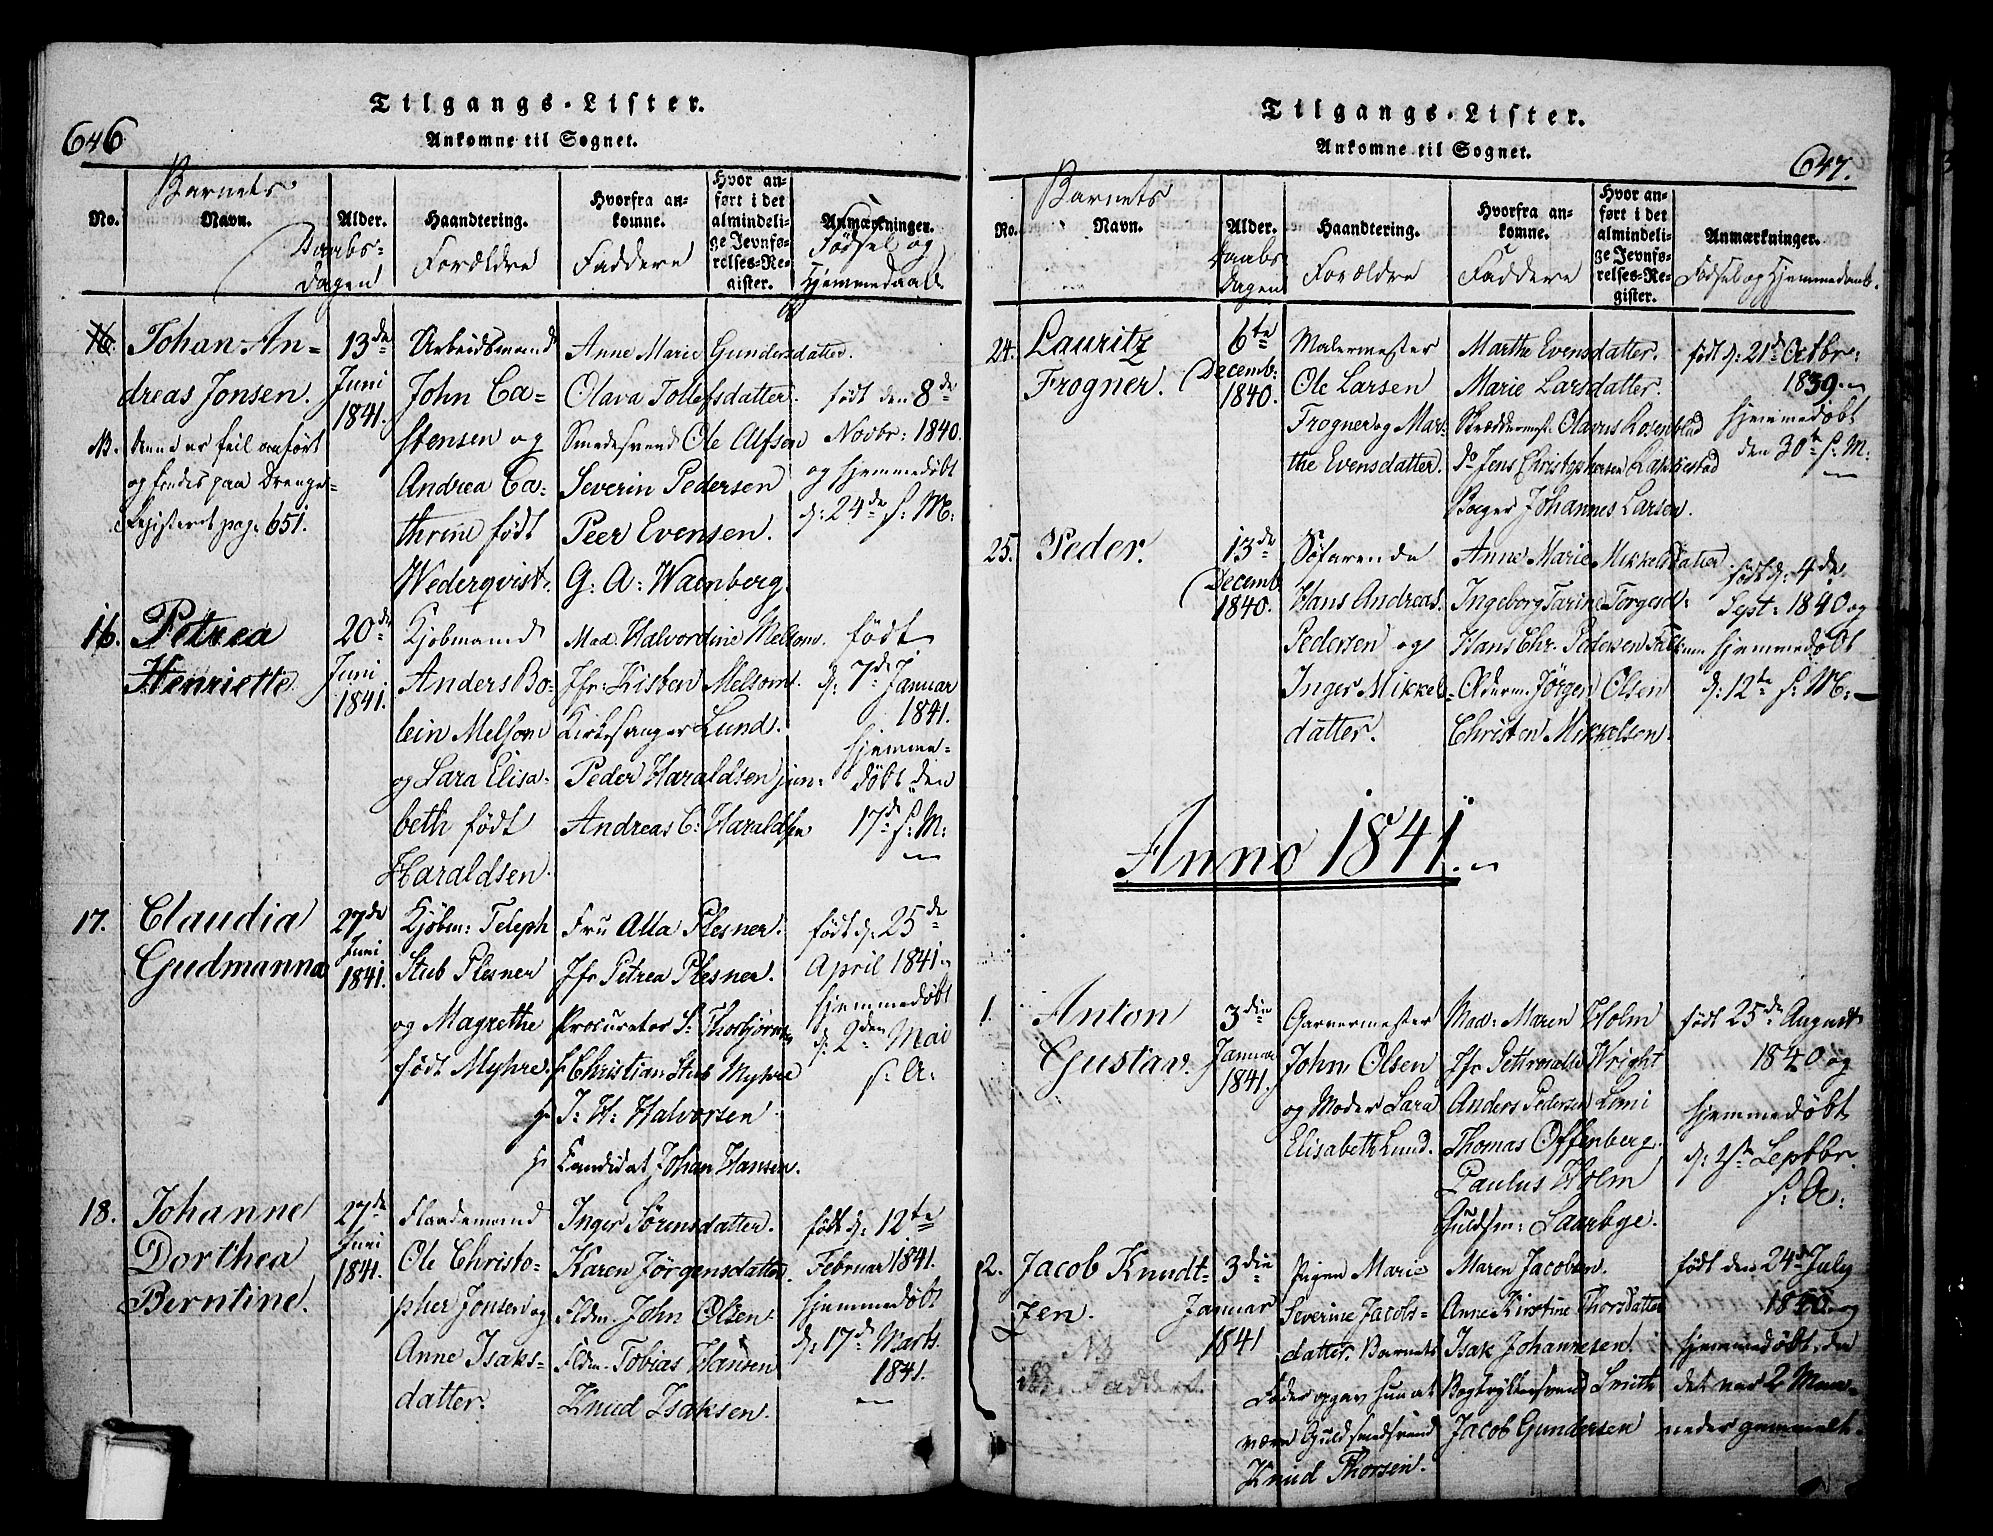 646
Tilgangs-Lister.
Ankomne til Sognet.
Barnets
No. Navn. Alder. Haandtering. Hvorfra ankomne. Hvor anført i det almindelige Jevnførelses-Register. Anmærkninger.
Daabs-
Dagen
Forældre
Faddere
Fødsel og
Hjemmedaab
16.
Johan An-
dreas Jonsen.
NB. denne er feil anført
og findes paa Drenge-
Registeret pag: 651.
13de
Juni
1841.
Arbeidsmand
John Ca-
stensen og
Andrea Ca-
thrine født
Wederqvist.
Anne Marie Gundersdatter.
Olava Tollefsdatter.
Smedesvend Ole Alfsen
Severin Pedersen
Peer Evensen.
G: A: Waenberg.
født den 8de
Novbr: 1840.
og hjemmedøbt
d: 24de s: M:
16.
Petrea
Henriette.
20de
Juni
1841.
Kjøbmand
Anders Bo-
lein Melsom
og Sara Elisa-
beth født
Haraldsen.
Mad. Halvordine Melsom.
Jfr: Kisten Melsom.
Kirkesanger Lund.
Peder Haraldsen jun:
Andreas C: Haraldsen
født
d: 7de Januar
1841.
hjemme-
døbt den
17de s: M:
17.
Claudia
Gudmanna
27de
Juni
1841.
Kjøbm: Teleph
Stub Plesner
og Magrethe
født Myhre.
Fru Alla Plesner.
Jfr Petrea Plesner.
Procurator S: Thorbjørns
Christian Stub Myhre
J: H: Halvorsen
Candidat Johan Hansen.
født d: 25de
April 1841.
hjemmedøbt
d: 2den Mai
s: A:
18.
Johanne
Dorthea
Berntine.
27de
Juni
1841.
Flaademand
Ole Christo-
pher Jonsen og
Anne Isaks-
datter.
Inger Sørensdatter.
Karen Jørgensdatter.
Fldm. John Olsen.
Fldm. Tobias Hansen
Knud Isaksen.
født d: 12te
Februar 1841.
hjemmedøbt
d: 17de Marts.
1841.
647.
Tilgangs-Lister.
Ankomne til Sognet.
Barnets
No. Navn. Alder. Haandtering. Hvorfra ankomne. Hvor anført i det almindelige Jevnførelses-Register. Anmærkninger.
Daabs
Dagen
Forældre
Faddere
Fødsel og Hjemmedaab.
24.
Lauritz
Frogner.
6te
Decemb:
1840.
Malermester
Ole Larsen
Frogner og Mar-
the Evensdatter.
Marthe Evensdatter.
Marie Larsdatter.
Skræddermst. Olavus Rosenblad
do Jens Christophersen
Bager Johannes Larsen.
født d: 21de Octbr:
1839.
hjemmedøbt
den 30te s: M:
25.
Peder.
13de
Decemb
1840.
Søfarende
Hans Andreas
Pedersen og
Inger Mikkels-
datter.
Anne Marie Mikkelsdatter
Ingeborg Tarine Torgersd:
Hans Chr. Pedersen
Olderm. Jørgen Olsen
Christen Mikkelsen.
født d: 4de
Sept: 1840 og
hjemmedøbt
d: 12te s: M:
Anno 1841.
1.
Anton
Gustav.
3die
Januar
1841.
Garvermester
John Olsen
og Moder Sara
Elisabeth Lund.
Mad: Maren Holm
Jfr Pettronelle Wright
Anders Pedersen Lini
Thomas Offenberg.
Paulus Holm
Guldsm: Saarbye.
født 25de August
1840 og
hjemmedøbt
d: 1ste Septbr.
s: A:
2.
Jacob Knudt-
zen.
NB
Fadder
3die
Januar
1841
Pigen Marie
Severine Jacobs-
datter. Barnets
Fader opgav hun at
være Guldsmedsvend
Knud Thorsen.
Maren Jacobsen.
Anne Kirstine Thorsdatter
Isak Johannesen.
Bogtrykkersvend Smith
Jacob Gundersen
født den 24de July
1840 og
hjemmedøbt, da
det var 2 Maa-
neder gammelt.